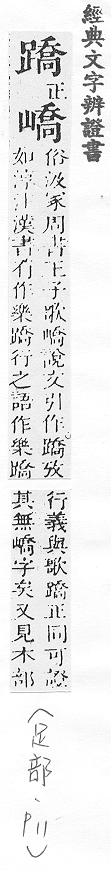 經典文字辨證書
蹻正
嶠
俗汲冢周書王子歌嶠說文引作蹻攷
如淳注漢書有作樂蹻行之語作樂蹻
行義與歌蹻正同可證
其無嶠字矣又見木部
(足部·P11)